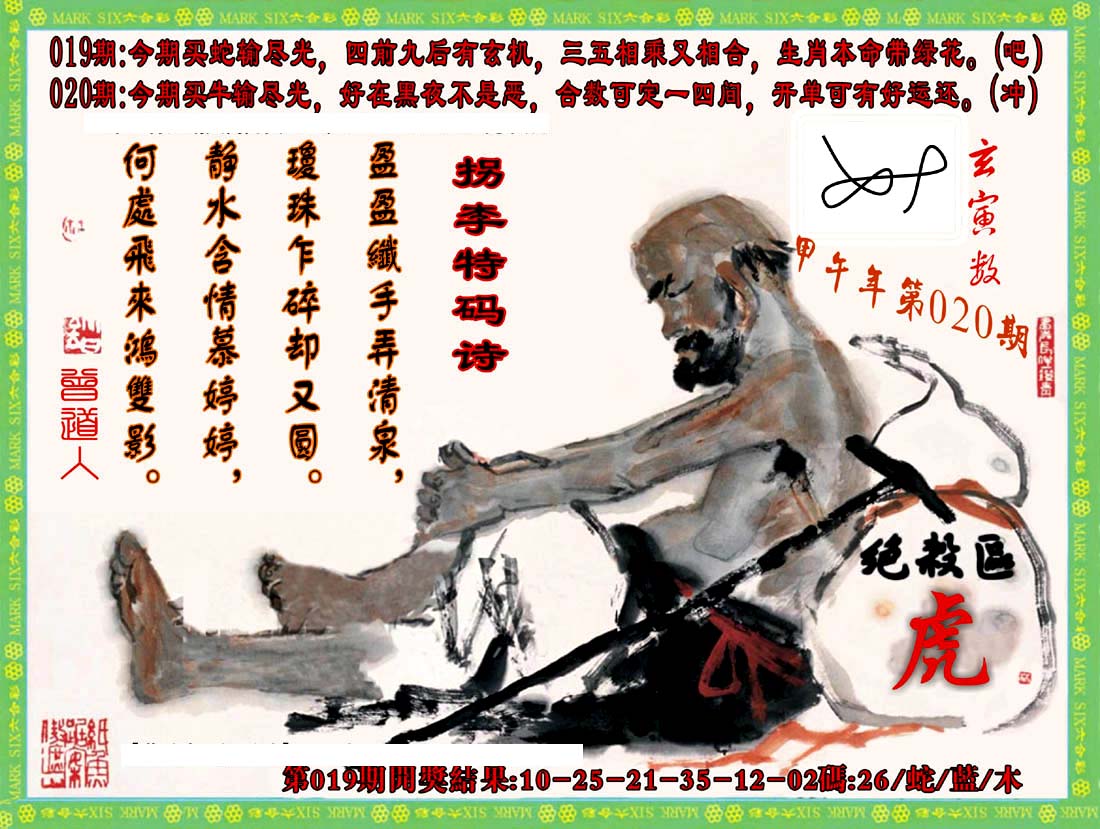 MARK SIX六合彩
019期:今期买蛇输尽光，四前九后有玄机，三五相乘又相合，生肖本命带绿花。(吧)
020期:今期买牛输尽光，好在黑夜不是恶，合数可定一四间，开单可有好运还。(冲)
拐李特码诗
盈盈纖手弄清泉，
瓊珠乍碎却又圓。
靜水含情慕婷婷，
何處飛來鴻雙影。
玄寅数
甲午年第020期
曾道人
绝殺區
虎
第019期開獎結果:10-25-21-35-12-02碼:26/蛇/藍/木